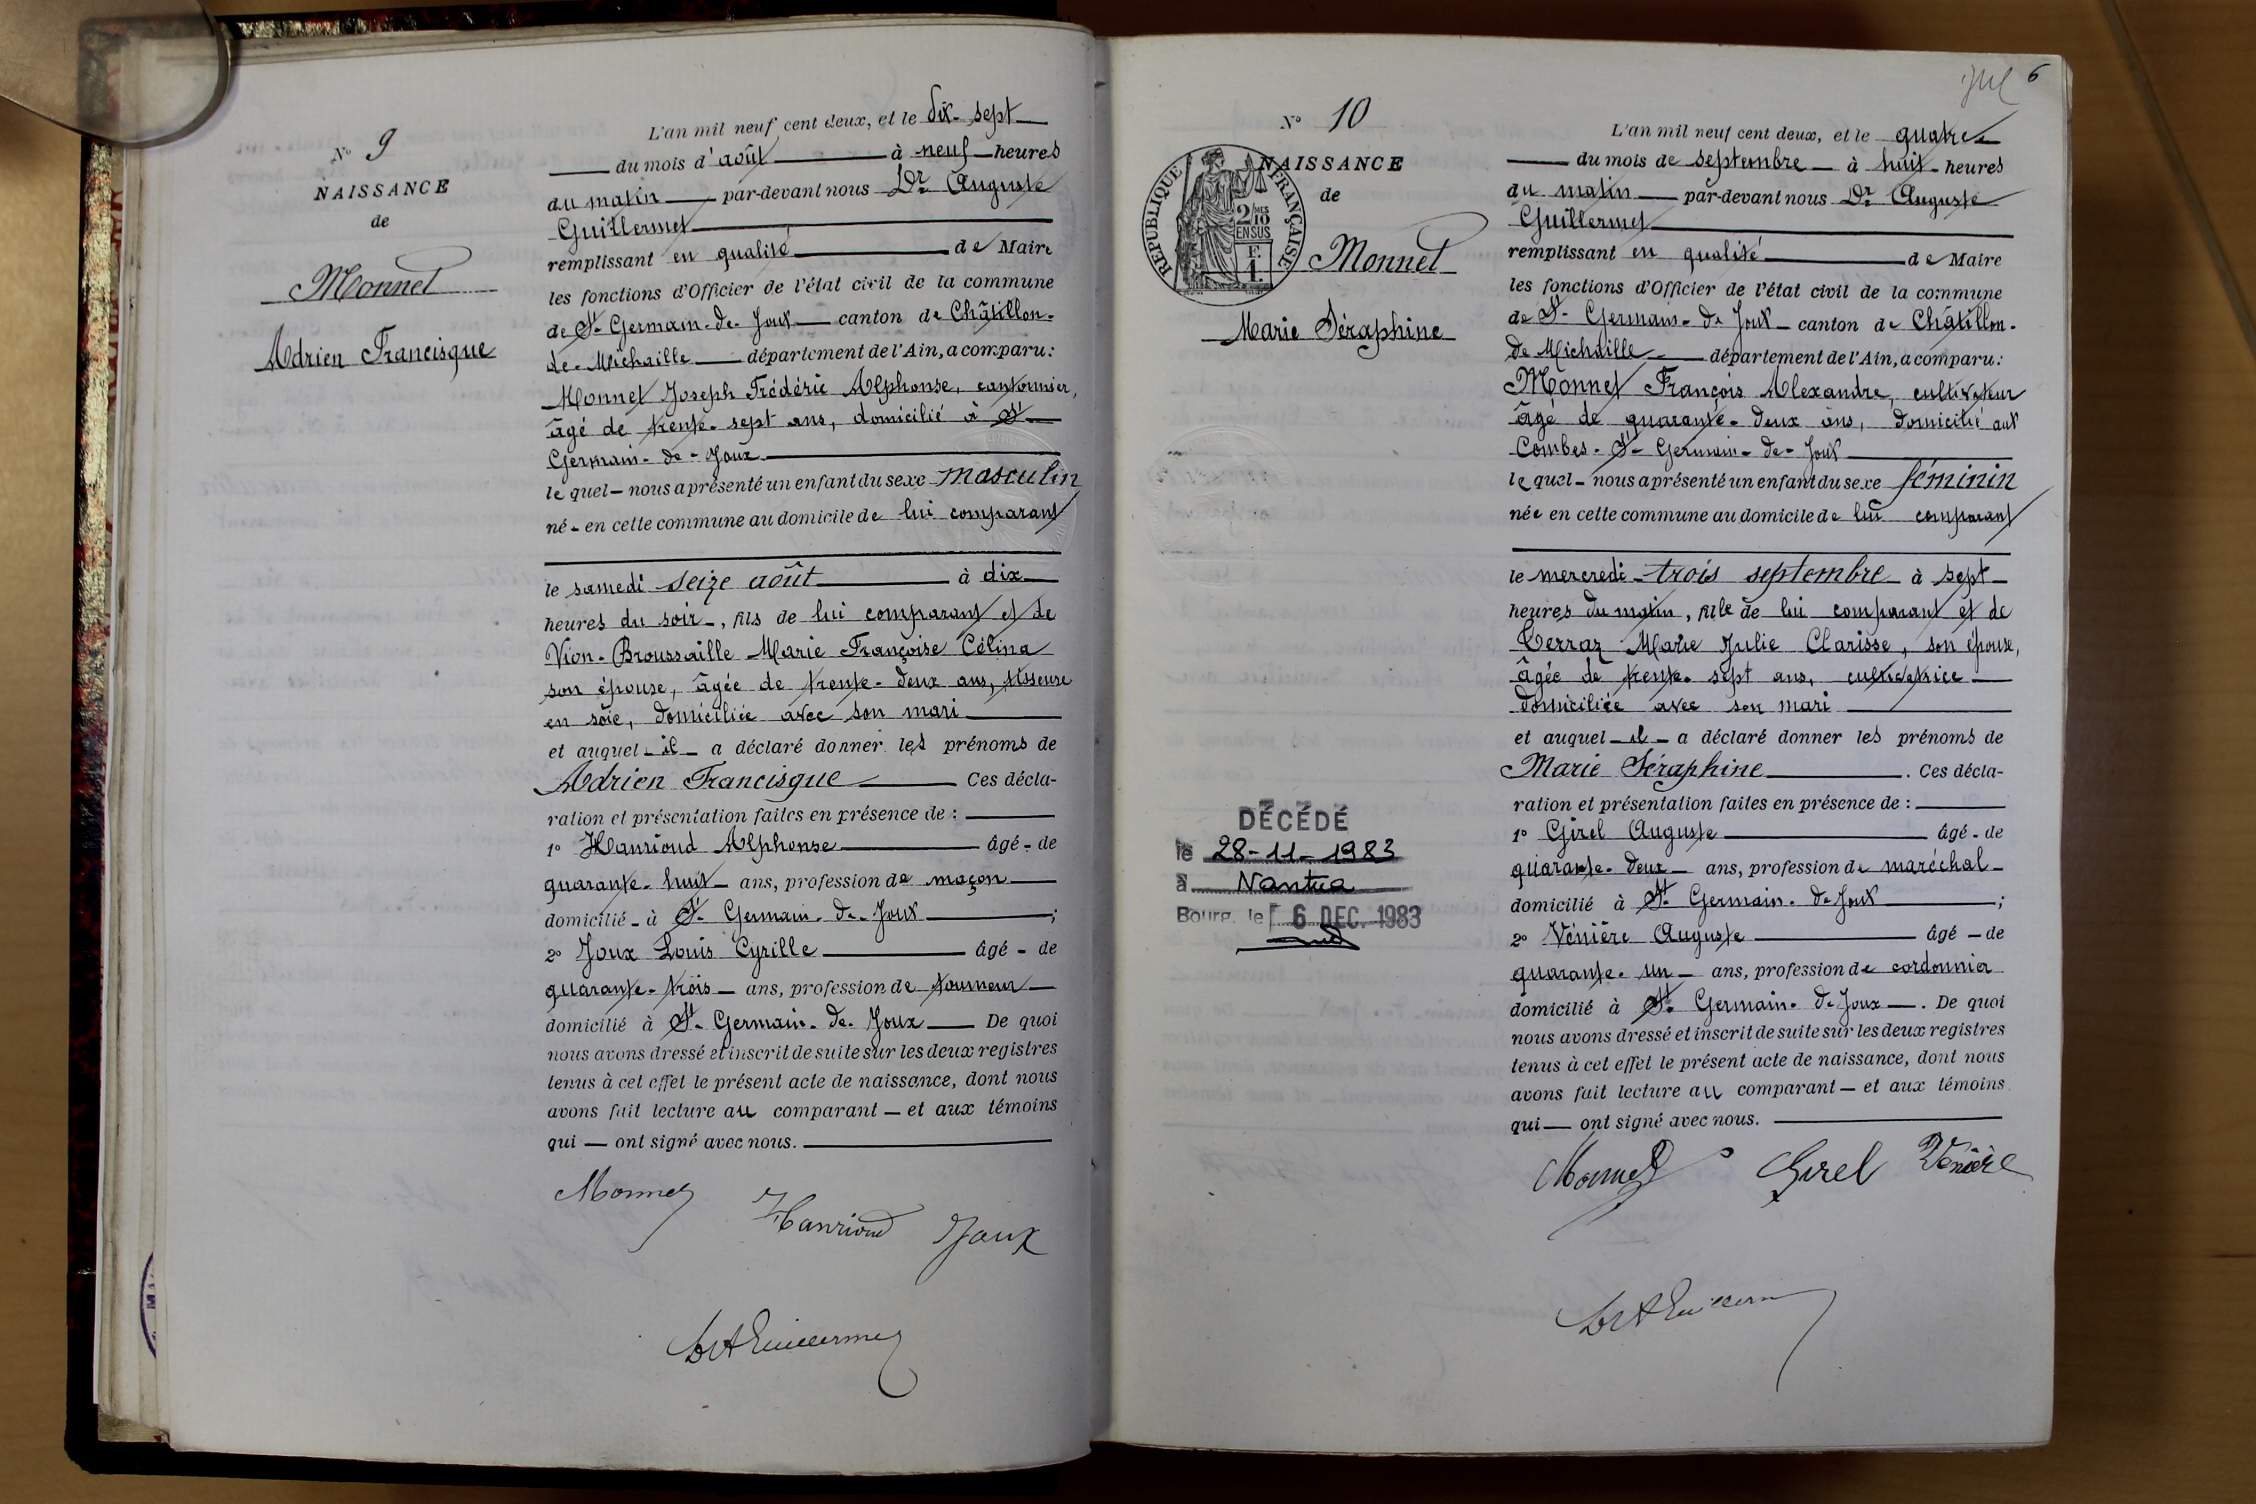 N° 9
NAISSANCE
de
Monnet
Adrien Francisque
L'an mil neuf cent deux, et le dix-sept
du mois d'août à neuf heures
du matin par-devant nous Dr Auguste
Guillermet
remplissant en qualité de Maire
les fonctions d'Officier de l'état civil de la commune
de St-Germain-de-Joux canton de Châtillon-
de-Michaille département de l'Ain, a comparu:
Monnet Joseph Frédéric Alphonse, cantonnier,
âgé de trente-sept ans, domicilié à St
Germain-de-Joux
lequel nous a présenté un enfant du sexe masculin
né en cette commune au domicile de lui comparant
le samedi seize août à dix
heures du soir, fils de lui comparant et de
Vion-Broussaille Marie Françoise Célina
son épouse, âgée de trente-deux ans, tisseuse
en soie, domiciliée avec son mari
et auquel il a déclaré donner les prénoms de
Adrien Francisque Ces décla-
ration et présentation faites en présence de :
1° Hanrioud Alphonse âgé de
quarante-huit ans, profession de maçon
domicilié à St-Germain-de-Joux ;
2° Joux Louis Cyrille âgé de
quarante-trois ans, profession de tourneur
domicilié à St-Germain-de-Joux De quoi
nous avons dressé et inscrit de suite sur les deux registres
tenus à cet effet le présent acte de naissance, dont nous
avons fait lecture au comparant et aux témoins
qui ont signé avec nous.
Monnet
Hanrioud Joux
Dr A Guillermet
6
N° 10
NAISSANCE
de
RÉPUBLIQUE FRANÇAISE
2/10 MES
EN SUS
Monnet
Marie Séraphine
DÉCÉDÉ
le 28-11-1983
à Nantua
Bourg, le 6 DEC. 1983
L'an mil neuf cent deux, et le quatre
du mois de septembre à huit heures
du matin par-devant nous Dr Auguste
Guillermet
remplissant en qualité de Maire
les fonctions d'Officier de l'état civil de la commune
de St-Germain-de Joux canton de Châtillon-
de Michaille département de l'Ain, a comparu:
Monnet François Alexandre, cultivateur
âgé de quarante-deux ans, domicilié aux
Combes-St-Germain-de-Joux
lequel nous a présenté un enfant du sexe féminin
née en cette commune au domicile de lui comparant
le mercredi trois septembre à sept
heures du matin, fille de lui comparant et de
Terraz Marie Julie Clarisse, son épouse,
âgée de trente-sept ans, cultivatrice
domiciliée avec son mari
et auquel il a déclaré donner les prénoms de
Marie Séraphine. Ces décla-
ration et présentation faites en présence de :
1° Girel Auguste âgé de
quarante-deux ans, profession de maréchal
domicilié à St-Germain-de Joux ;
2° Vénière Auguste âgé de
quarante-un ans, profession de cordonnier
domicilié à St-Germain-de Joux. De quoi
nous avons dressé et inscrit de suite sur les deux registres
tenus à cet effet le présent acte de naissance, dont nous
avons fait lecture au comparant et aux témoins
qui ont signé avec nous.
Monnet Girel Vénière
Dr A Guillerm